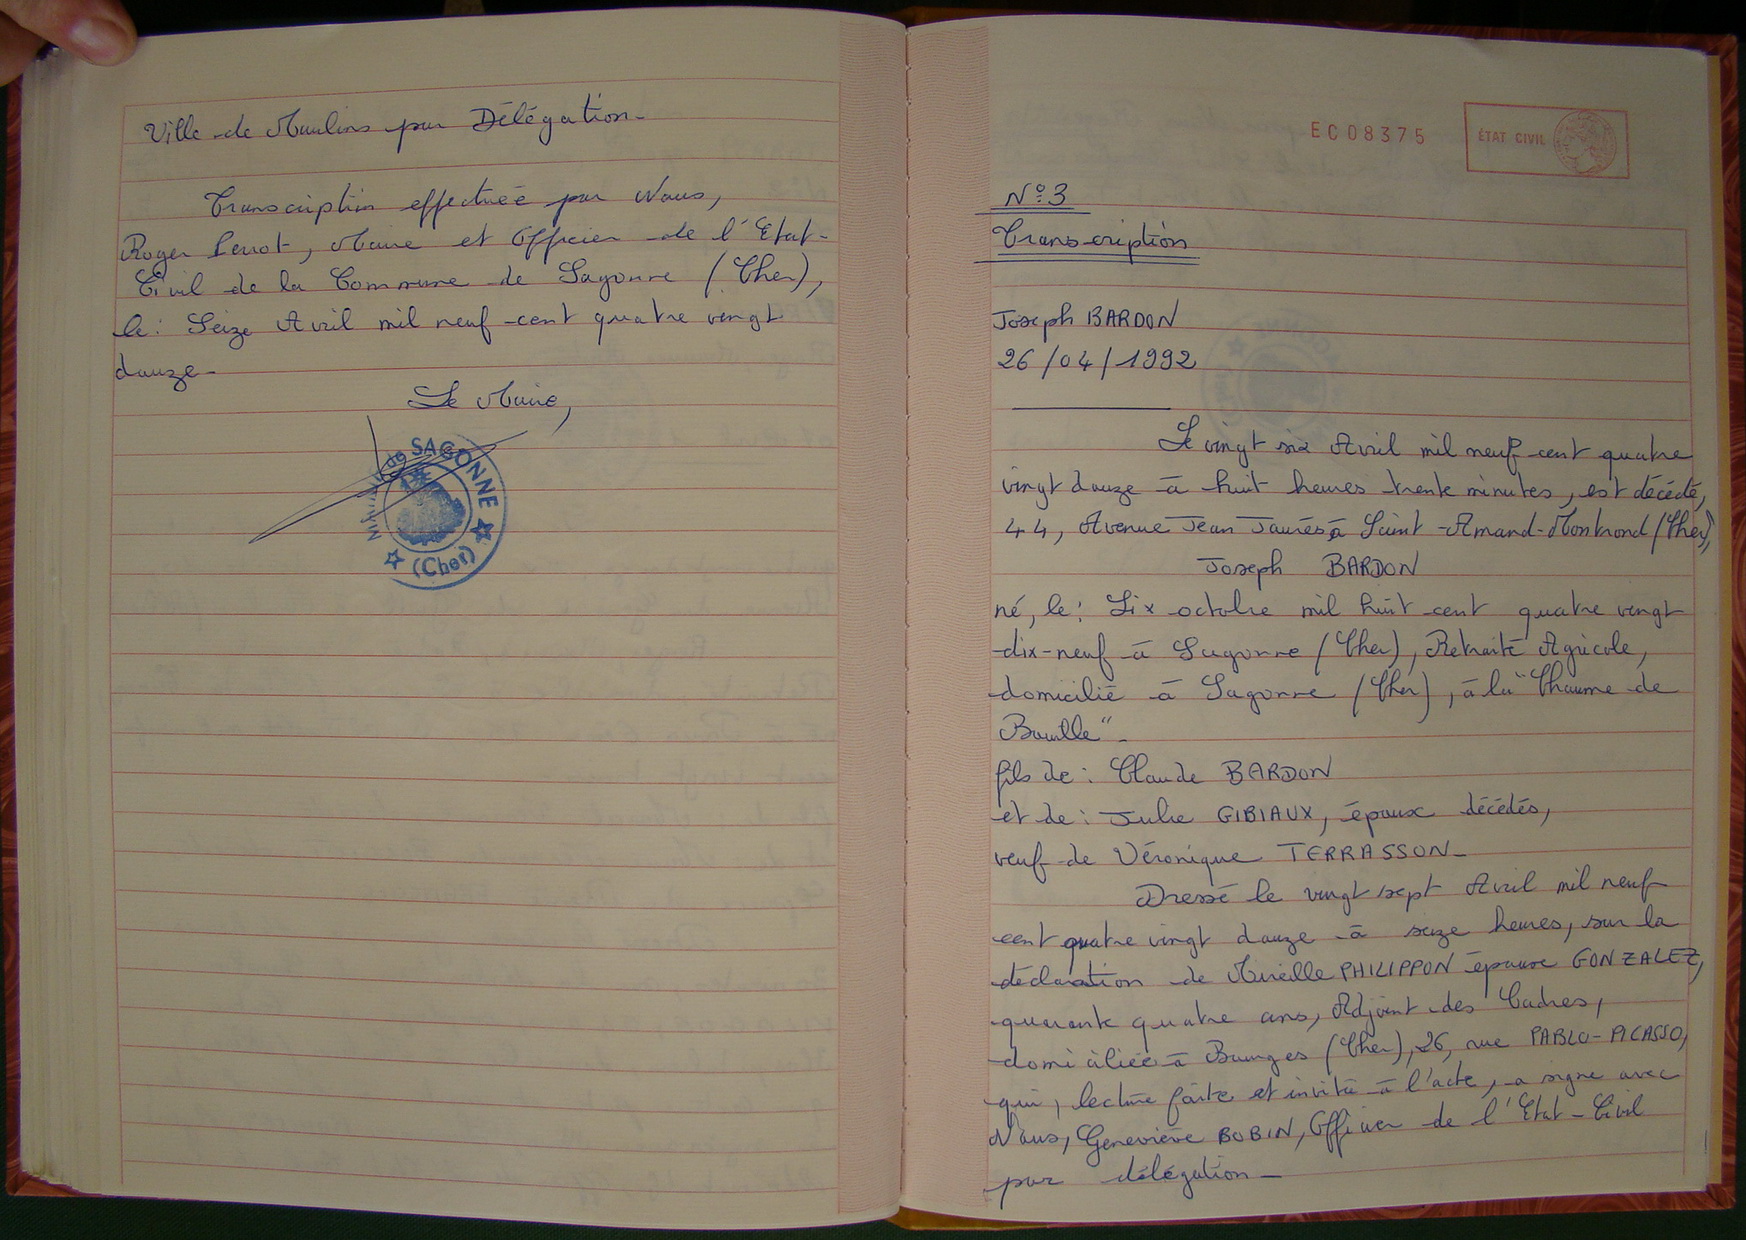 Ville de Moulins par Délégation.
Transcription effectuée par Nous,
Roger Perrot, Maire et Officier de l'Etat-
Civil de la Commune de Sagonne (Cher),
le: Seize Avril mil neuf cent quatre vingt
douze.
Le Maire,
Mairie de SAGONNE
(Cher)
EC08375
ÉTAT CIVIL
N°3
Transcription
Joseph BARDON
26/04/1992
Le vingt six Avril mil neuf cent quatre
vingt douze à huit heures trente minutes, est décédé,
44, Avenue Jean Jaurès à Saint-Amand-Montrond (Cher),
Joseph BARDON
né, le: Six octobre mil huit cent quatre vingt
dix-neuf à Sagonne (Cher), Retraité Agricole,
domicilié à Sagonne (Cher), à la "Chaume de
Bouille".
fils de: Claude BARDON
et de: Julie GIBIAUX, époux décédés,
veuf de Véronique TERRASSON.
Dressé le vingt sept Avril mil neuf
cent quatre vingt douze à seize heures, sur la
déclaration de Mireille PHILIPPON épouse GONZALEZ,
quarante quatre ans, Adjoint des Cadres,
domiciliée à Bourges (Cher), 26, rue PABLO-PICASSO,
qui, lecture faite et invité à l'acte, a signé avec
Nous, Geneviève BOBIN, Officier de l'Etat-Civil
par délégation.